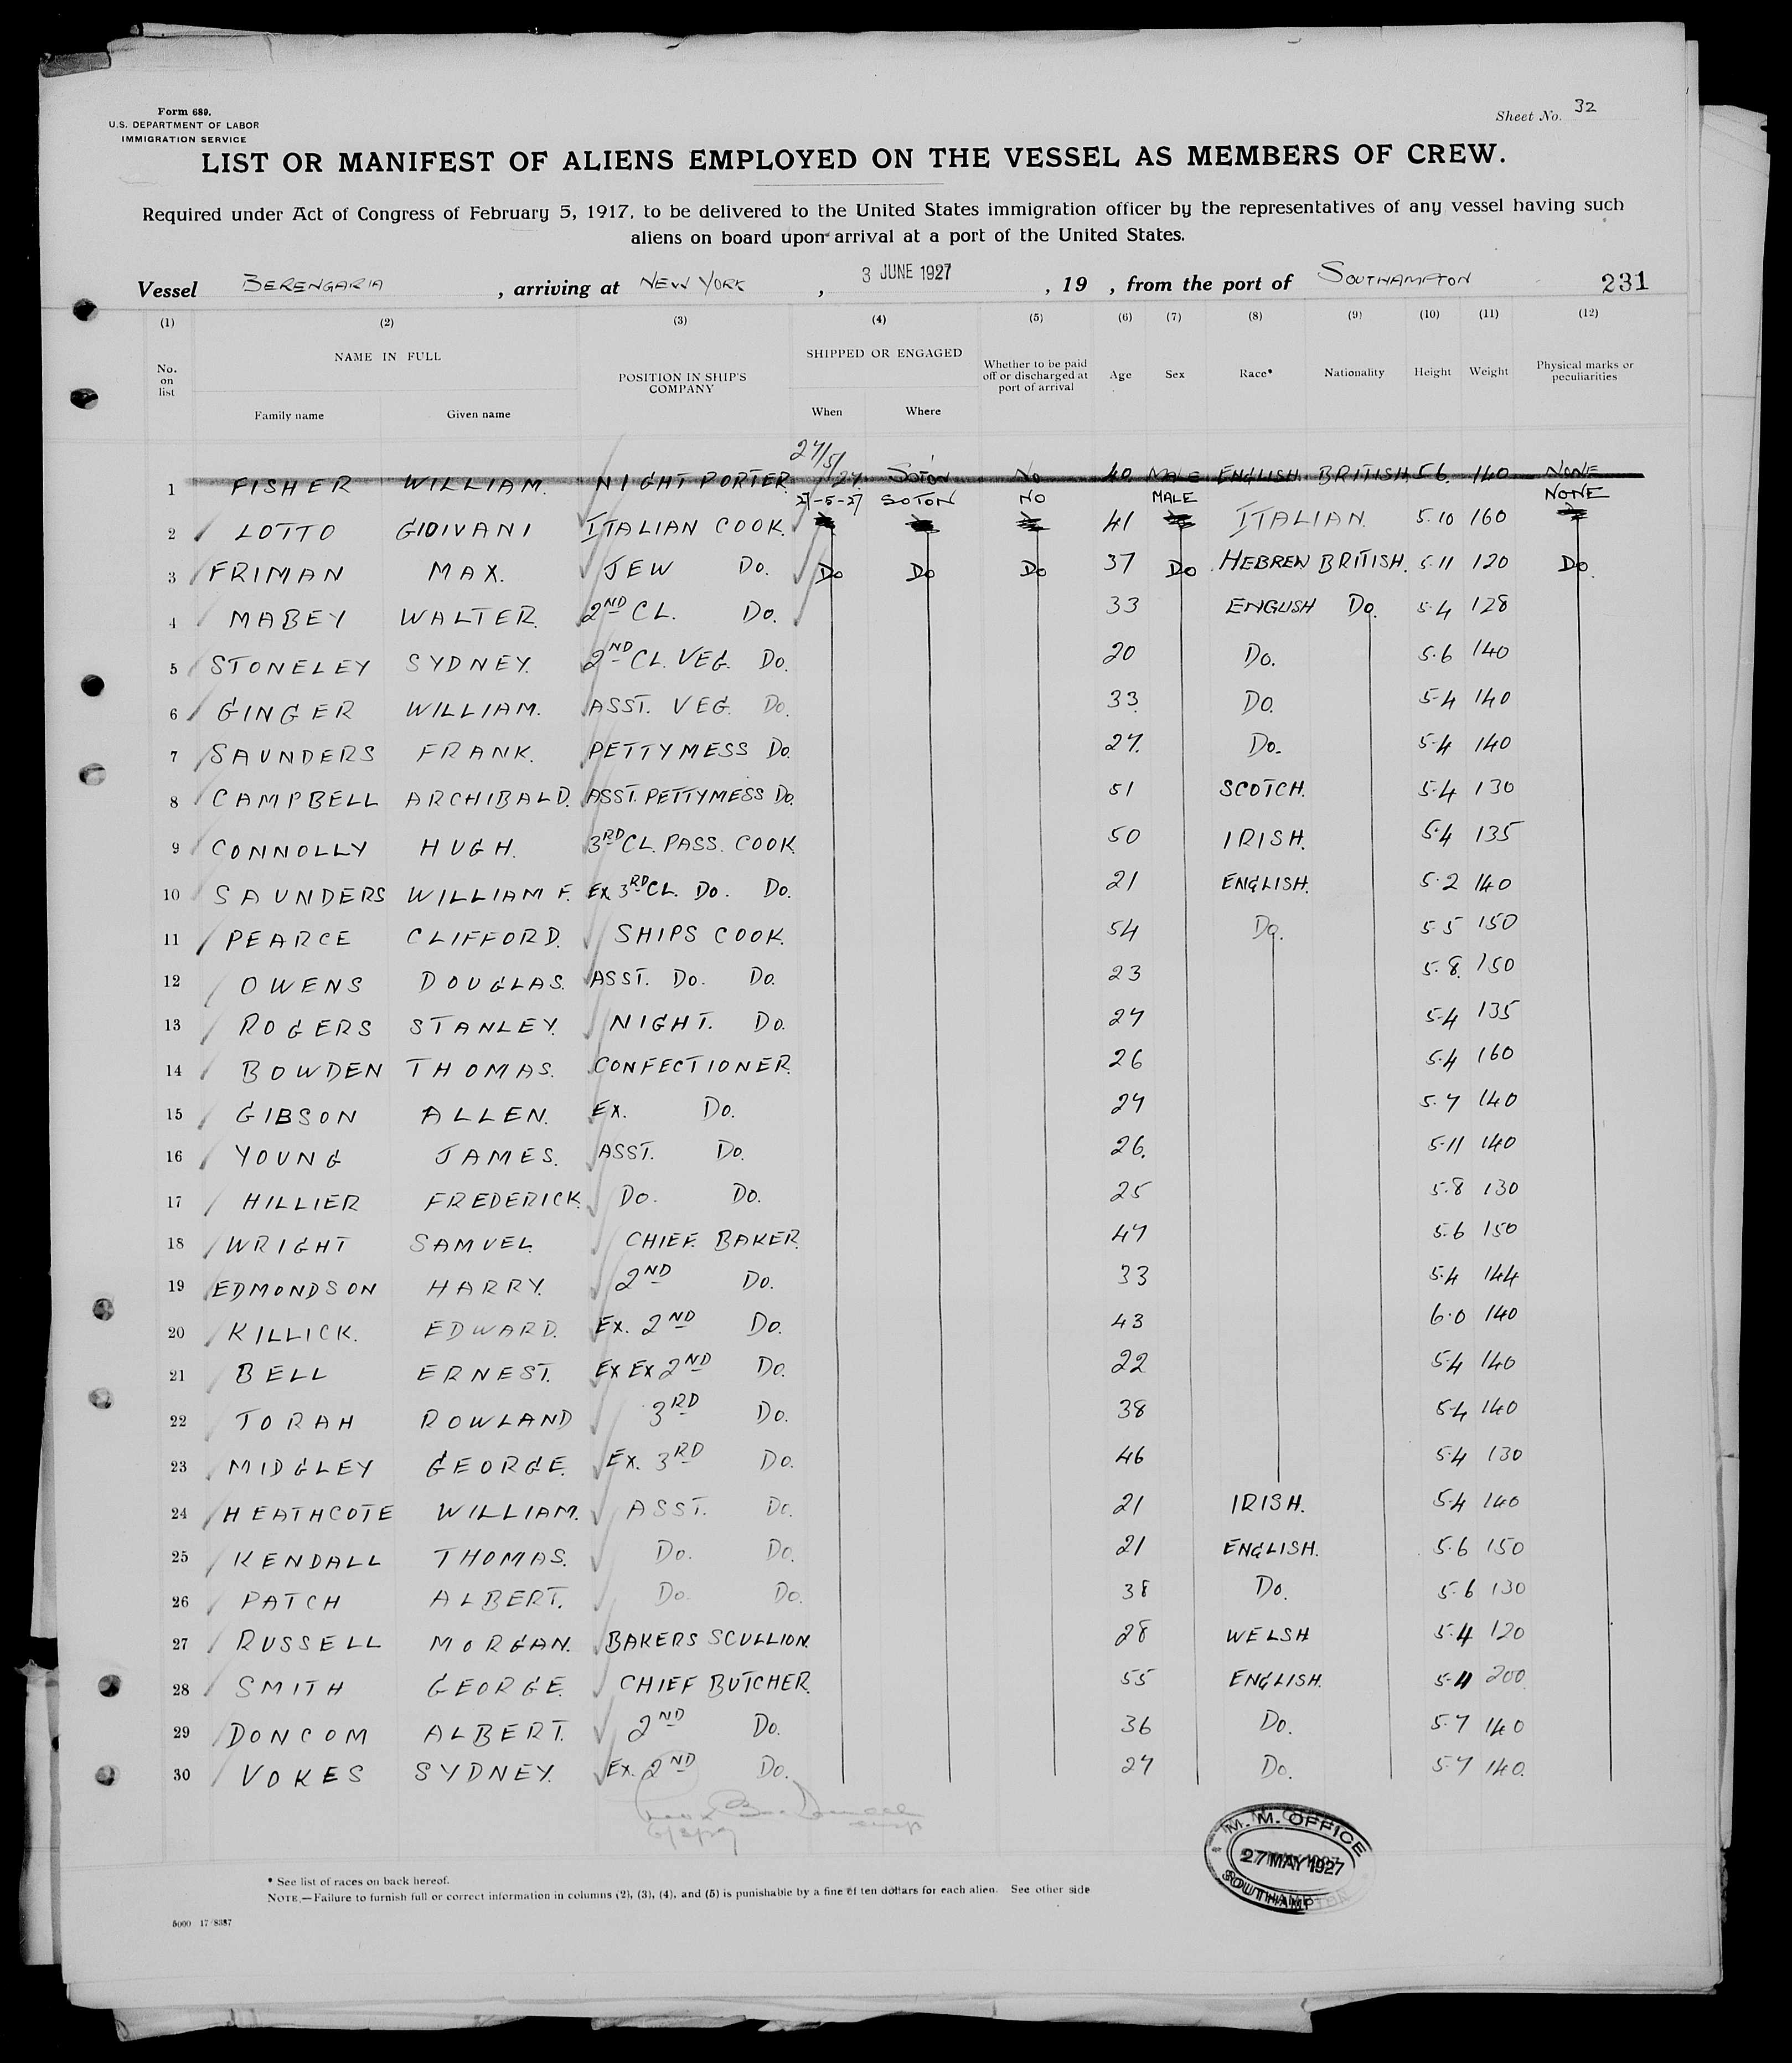 Form 689.
U.S. DEPARTMENT OF LABOR
IMMIGRATION SERVICE
Sheet No. 32
LIST OR MANIFEST OF ALIENS EMPLOYED ON THE VESSEL AS MEMBERS OF CREW.
Required under Act of Congress of February 5, 1917, to be delivered to the United States immigration officer by the representatives of any vessel having such
aliens on board upon arrival at a port of the United States.
Vessel BERENGARIA , arriving at NEW YORK , 3 JUNE 1927 , 19 , from the port of SOUTHAMPTON 231
(1) (2) (3) (4) (5) (6) (7) (8) (9) (10) (11) (12)
No. on list NAME IN FULL POSITION IN SHIP'S COMPANY SHIPPED OR ENGAGED Whether to be paid off or discharged at port of arrival Age Sex Race* Nationality Height Weight Physical marks or peculiarities
Family name Given name When Where
1 FISHER WILLIAM. NIGHT PORTER. 27/5/27. SOTON NO 40 MALE ENGLISH. BRITISH 5.6. 140 NONE
27-5-27 SOTON NO MALE NONE
2 LOTTO GIOIVANI ITALIAN COOK. 41 ITALIAN. 5.10 160
3 FRIMAN MAX. JEW DO. DO DO DO 37 DO HEBREW BRITISH. 5.11 120 DO.
4 MABEY WALTER. 2ND CL. DO. 33 ENGLISH DO. 5.4 128
5 STONELEY SYDNEY. 2ND CL. VEG. DO. 20 DO. 5.6 140
6 GINGER WILLIAM. ASST. VEG. DO. 33. DO. 5.4 140
7 SAUNDERS FRANK. PETTYMESS DO. 27. DO. 5.4 140
8 CAMPBELL ARCHIBALD. ASST. PETTYMESS DO. 51 SCOTCH. 5.4 130
9 CONNOLLY HUGH. 3RD CL. PASS. COOK. 50 IRISH. 5.4 135
10 SAUNDERS WILLIAM F. EX 3RD CL. DO. DO. 21 ENGLISH. 5.2 140
11 PEARCE CLIFFORD. SHIPS COOK. 54 DO. 5.5 150
12 OWENS DOUGLAS. ASST. DO. DO. 23 5.8. 150
13 ROGERS STANLEY. NIGHT. DO. 27 5.4 135
14 BOWDEN THOMAS. CONFECTIONER. 26 5.4 160
15 GIBSON ALLEN. EX. DO. 27 5.7 140
16 YOUNG JAMES. ASST. DO. 26. 5.11 140
17 HILLIER FREDERICK. DO. DO. 25 5.8 130
18 WRIGHT SAMUEL. CHIEF. BAKER. 47 5.6 150
19 EDMONDSON HARRY. 2ND DO. 33 5.4 144
20 KILLICK. EDWARD. EX. 2ND DO. 43 6.0 140
21 BELL ERNEST. EX EX 2ND DO. 22 5.4 140
22 TORAH ROWLAND 3RD DO. 38 5.4 140
23 MIDGLEY GEORGE. EX. 3RD DO. 46 5.4 130
24 HEATHCOTE WILLIAM. ASST. DO. 21 IRISH. 5.4 140
25 KENDALL THOMAS. DO. DO. 21 ENGLISH. 5.6 150
26 PATCH ALBERT. DO. DO. 38 DO. 5.6 130
27 RUSSELL MORGAN. BAKERS SCULLION. 28 WELSH 5.4 120
28 SMITH GEORGE. CHIEF BUTCHER. 55 ENGLISH. 5.4 200.
29 DONCOM ALBERT. 2ND DO. 36 DO. 5.7 140
30 VOKES SYDNEY. EX. 2ND DO. 27 DO. 5.7 140.
M. M. OFFICE
27 MAY 1927
SOUTHAMPTON
* See list of races on back hereof.
NOTE.—Failure to furnish full or correct information in columns (2), (3), (4), and (5) is punishable by a fine of ten dollars for each alien. See other side
5000 17/8387